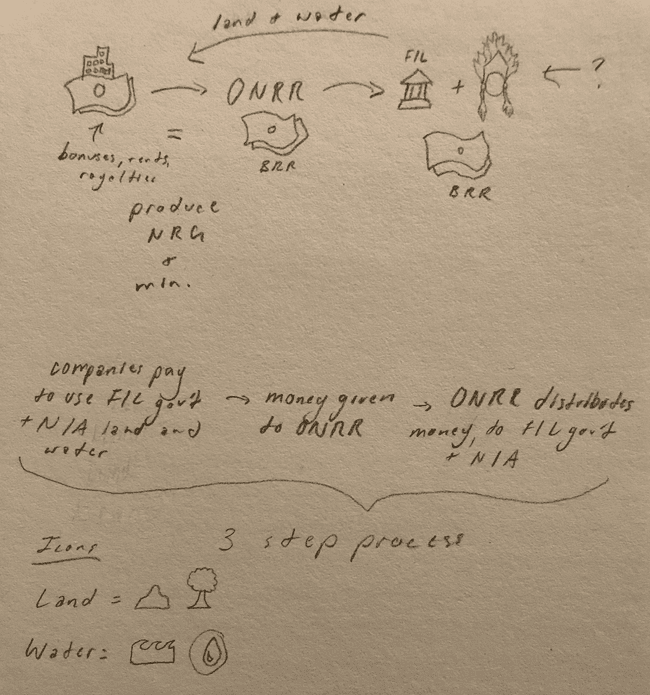 land + water
ONRR
F/L
+
?
=
BRR
BRR
bonuses, rents,
royalties
produce
NRG
&
min.
companies pay
to use F/L gov't
+ N/A land and
water
→ money given
to ONRR
→ ONRR distributes
money to F/L gov't
+ N/A
3 step process
Icons
Land =
Water =